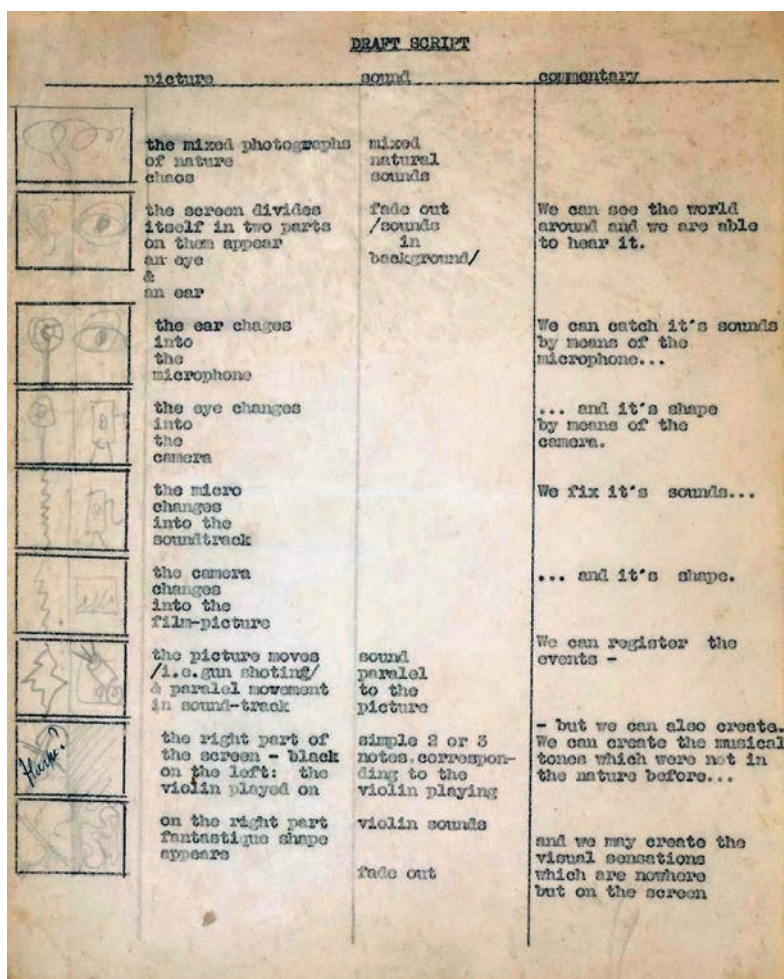 DRAFT SCRIPT
picture sound commentary
the mixed photographs
of nature
chaos
mixed
natural
sounds
the screen divides
itself in two parts
on them appear
an eye
&
an ear
fade out
/sounds
in
background/
We can see the world
around and we are able
to hear it.
the ear chages
into
the
microphone
We can catch it's sounds
by means of the
microphone...
the eye changes
into
the
camera
... and it's shape
by means of the
camera.
the micro
changes
into the
soundtrack
We fix it's sounds...
the camera
changes
into the
film-picture
... and it's shape.
the picture moves
/i.e.gun shoting/
& paralel movement
in sound-track
sound
paralel
to the
picture
We can register the
events -
the right part of
the screen - black
on the left: the
violin played on
simple 2 or 3
notes.correspon-
ding to the
violin playing
- but we can also create.
We can create the musical
tones which were not in
the nature before...
on the right part
fantastique shape
appears
violin sounds
fade out
and we may create the
visual sensations
which are nowhere
but on the screen